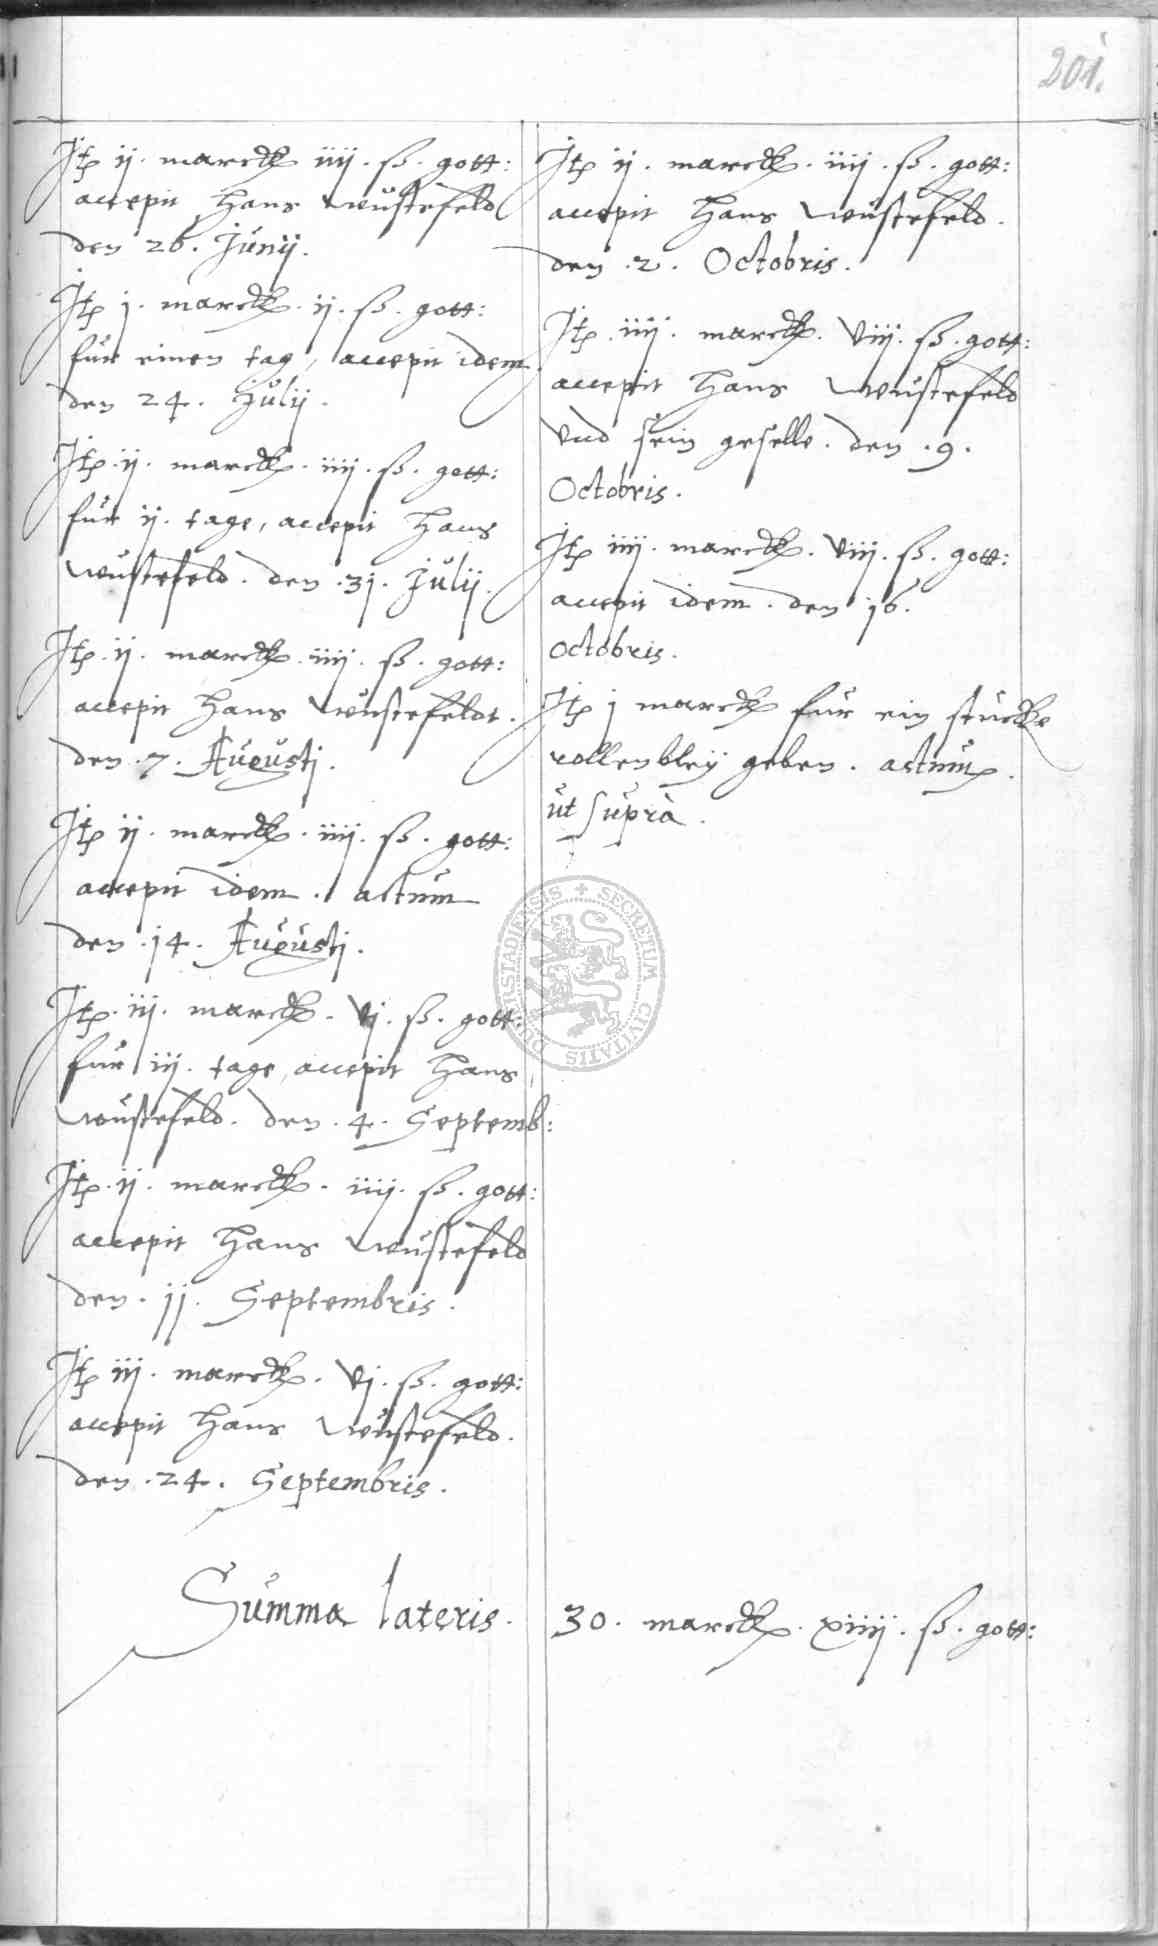 201.
Jtp ij. marck iiij. ß. gott:
accepit Hans Wüstefeld
den 26. Junij.
Jtp j. marck. ij. ß. gott:
für einen tag, accepit idem
den 24. Julij.
Jtp. ij. marck. iiij. ß. gott:
für ij. tage, accepit Hans
Wüstefeld. den .31. Julij.
Jtp. ij. marck. iiij. ß. gott:
accepit Hans Wüstefeldt.
den .7. Augustj.
Jtp ij. marck. iiij. ß. gott:
accepit idem. actum
den .14. Augustj.
Jtp. iij. marck. vj. ß. gott:
für iij. tage, accepit Hans
Wüstefeld. den .4. Septemb:
Jtp. ij. marck. iiij. ß. gott:
accepit Hans Wüstefeld
den. 11. Septembris.
Jtp iij. marck. vj. ß. gott:
accepit Hans Wüstefeld.
den .24. Septembris.
Jtp ij. marck. iiij. ß. gott:
accepit Hans Wüstefeld.
den .2. Octobris.
Jtp. iiij. marck. viij. ß. gott:
accepit Hans Wüstefeld
vnd sein geselle. den .9.
Octobris.
Jtp iiij. marck. viij. ß. gott:
accepit idem. den 16.
octobris.
Jtp j marck für ein stücke
rollenbleÿ geben. actum.
ut suprà.
SECRETUM CIVITATIS DUDERSTADIENSIS
Summa lateris. 30. marck. xiiij. ß. gott: